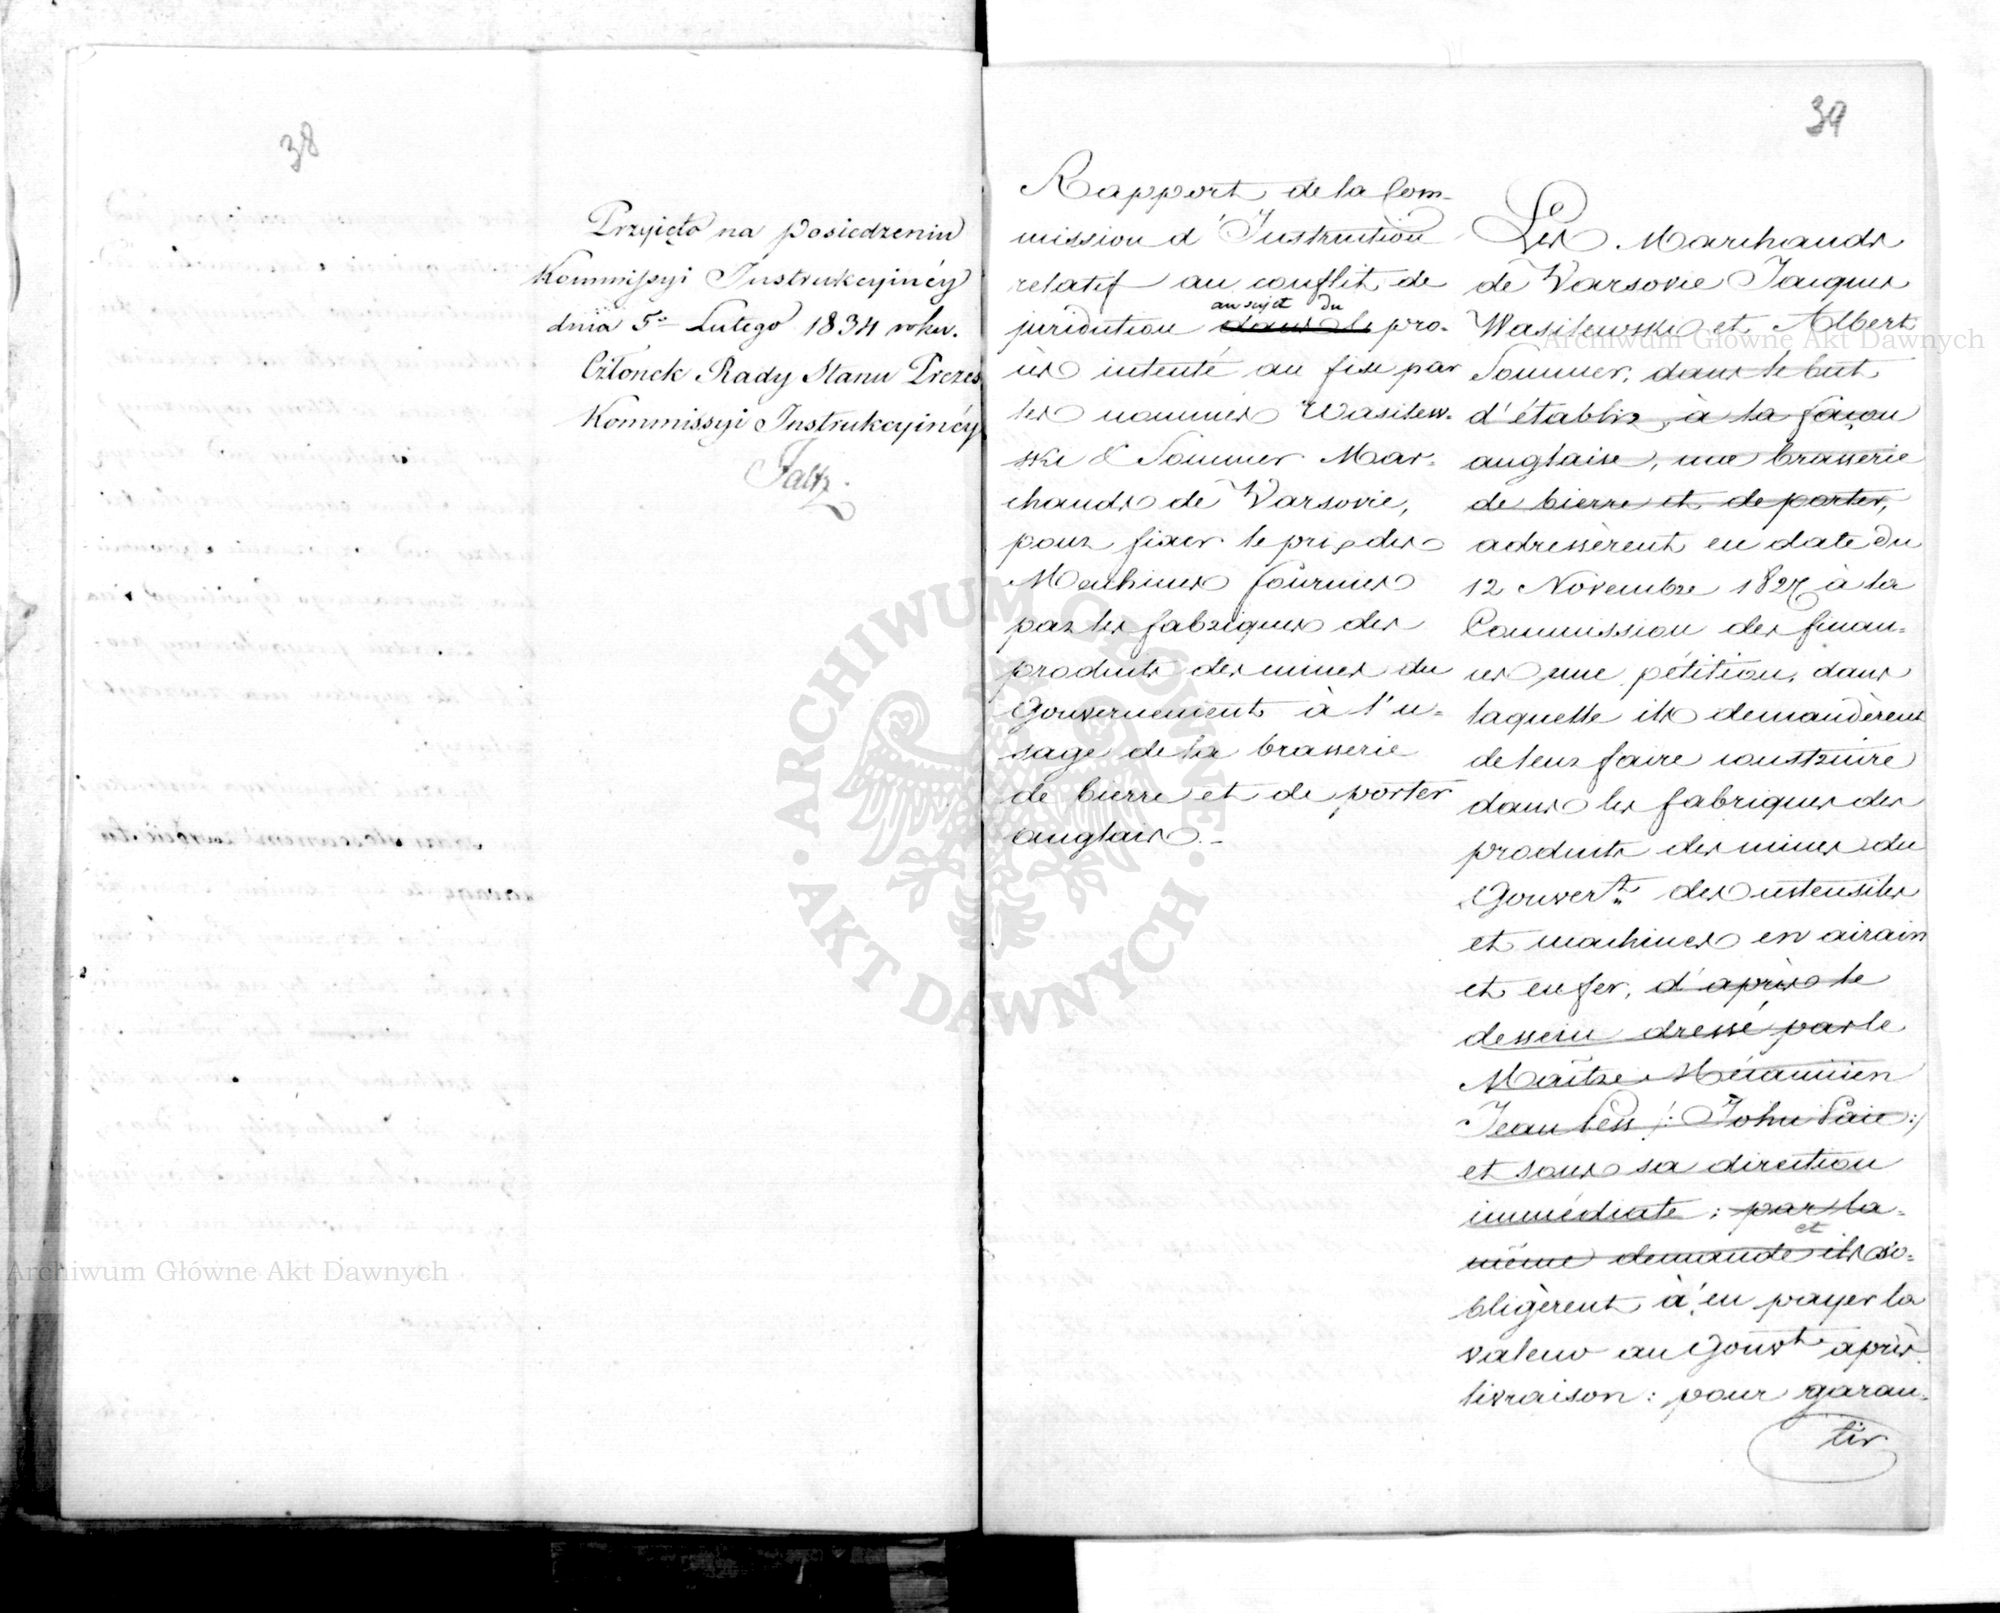 38
Przyięto na posiedzeniu
Kommissyi Instrukcyinéy
dnia 5º Lutego 1834 roku.
Członek Rady Stanu Prezes
Kommissyi Instrukcyinéy
39
Rapport de la Com-
mission d'Instruction
relatif au conflit de
au sujet du
juridiction dans le pro-
cès intenté au fisc par
les nommés Wasilew-
ski & Sommer Mar-
chands de Varsovie,
pour fixer le prix des
Machines fournies
par les fabriques des
produits des mines du
Gouvernement à l'u-
sage de la brasserie
de bierre et de porter
anglais.-
Les Marchands
de Varsovie Jacques
Wasilewski et Albert
Sommer, dans le but
d'établir, à la façon
anglaise, une brasserie
de bierre et de porter,
adressèrent en date du
12 Novembre 1827 à la
Commission des finan-
ces une pétition, dans
laquelle ils demandèrent
de leur faire construire
dans les fabriques des
produits des mines du
Gouvert des ustensiles
et machines en airain
et en fer, d'après le
dessein dressé par le
Maître Mécanicien
Jean Pess /: John Pace :/
et sous sa direction
immédiate ; par la
et
même demande ils s'o-
bligèrent à en payer la
valeur au Gouvt après
livraison : pour garan-
tir
Archiwum Główne Akt Dawnych
Archiwum Główne Akt Dawnych
ARCHIWUM GŁÓWNE · AKT DAWNYCH ·